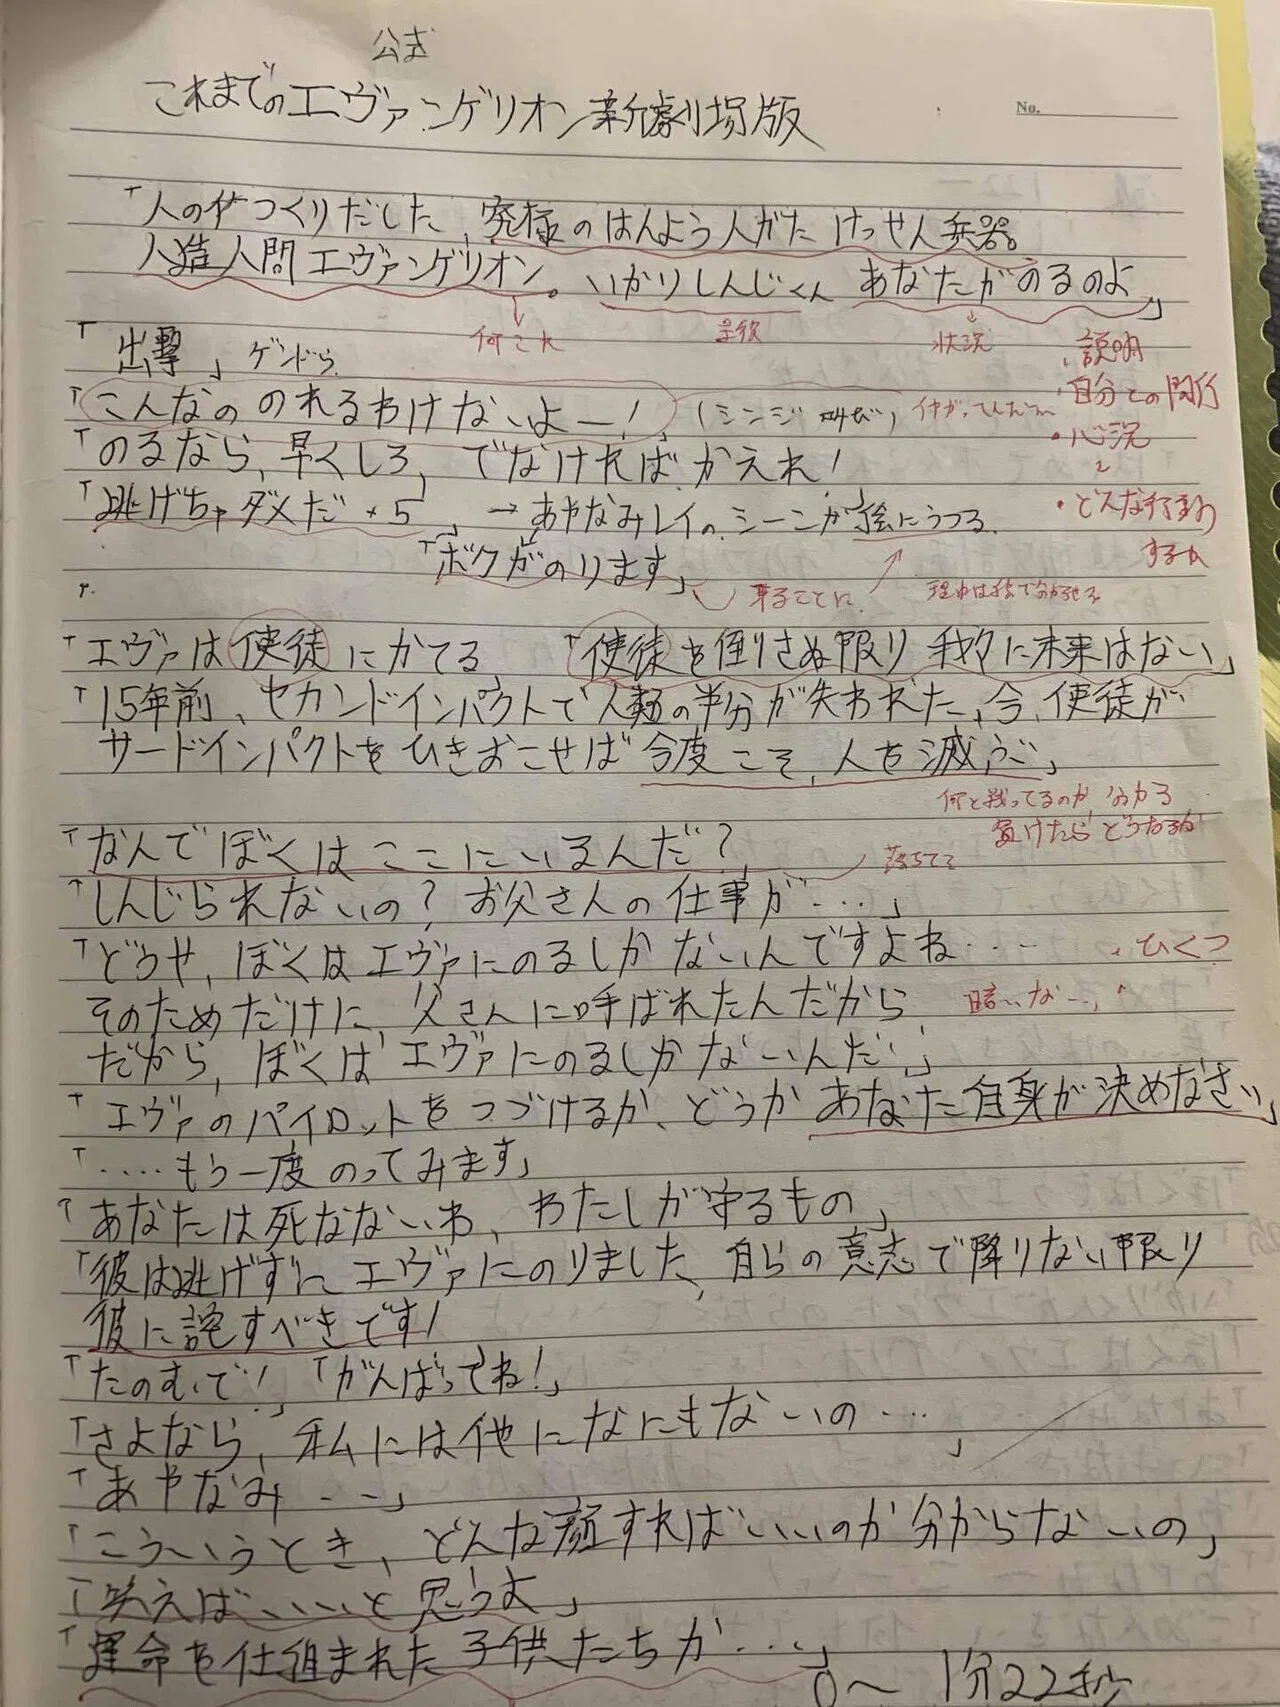 公式
これまでのエヴァンゲリオン新劇場版
No.
「人の つくりだした、究極のはんよう人がたけっせん兵器。
人造人間エヴァンゲリオン。いかりしんじくん あなたがのるのよ」
何これ 状況
「出撃」ゲンドウ
・説明
「こんなの のれるわけないよー!」(シンジ 叫び)
・自分との関係
「のるなら、早くしろ、でなければ かえれ!
・心況
「逃げちゃダメだ×5」→あやなみレイのシーンが絵にうつる
・どんな行動
するか
「ボクがのります」
乗ることに 理由は絵で分かせる
「エヴァは使徒にかてる 「使徒を倒さぬ限り 我々に未来はない」
「15年前、セカンドインパクトで人類の半分が失われた、今、使徒が
サードインパクトをひきおこせば今度こそ、人を滅ぶ」
何と戦ってるのか 分かる
負けたらどうなるか
「なんで ぼくは ここに いるんだ?」
落ちてる
「しんじられないの? お父さんの仕事が・・・」
「どうせ、ぼくはエヴァにのるしかないんですよね・・・
・ひくつ
そのためだけに、父さんに呼ばれたんだから
暗いな…
だから、ぼくはエヴァにのるしかないんだ!」
「エヴァのパイロットをつづけるか、どうか あなた自身が決めなさい」
「‥‥もう一度のってみます」
「あなたは死なないわ、わたしが守るもの」
「彼は逃げずにエヴァにのりました、自らの意志で降りない限り
彼に託すべきです!
「たのむで!」「がんばってね!」
「さよなら、私には他になにもないの・・・」
「あやなみ・・・」
「こういうとき、どんな顔すればいいのか分からないの」
「笑えばいいと思うよ」
「運命を仕組まれた子供たちが・・・」
0〜1分22秒